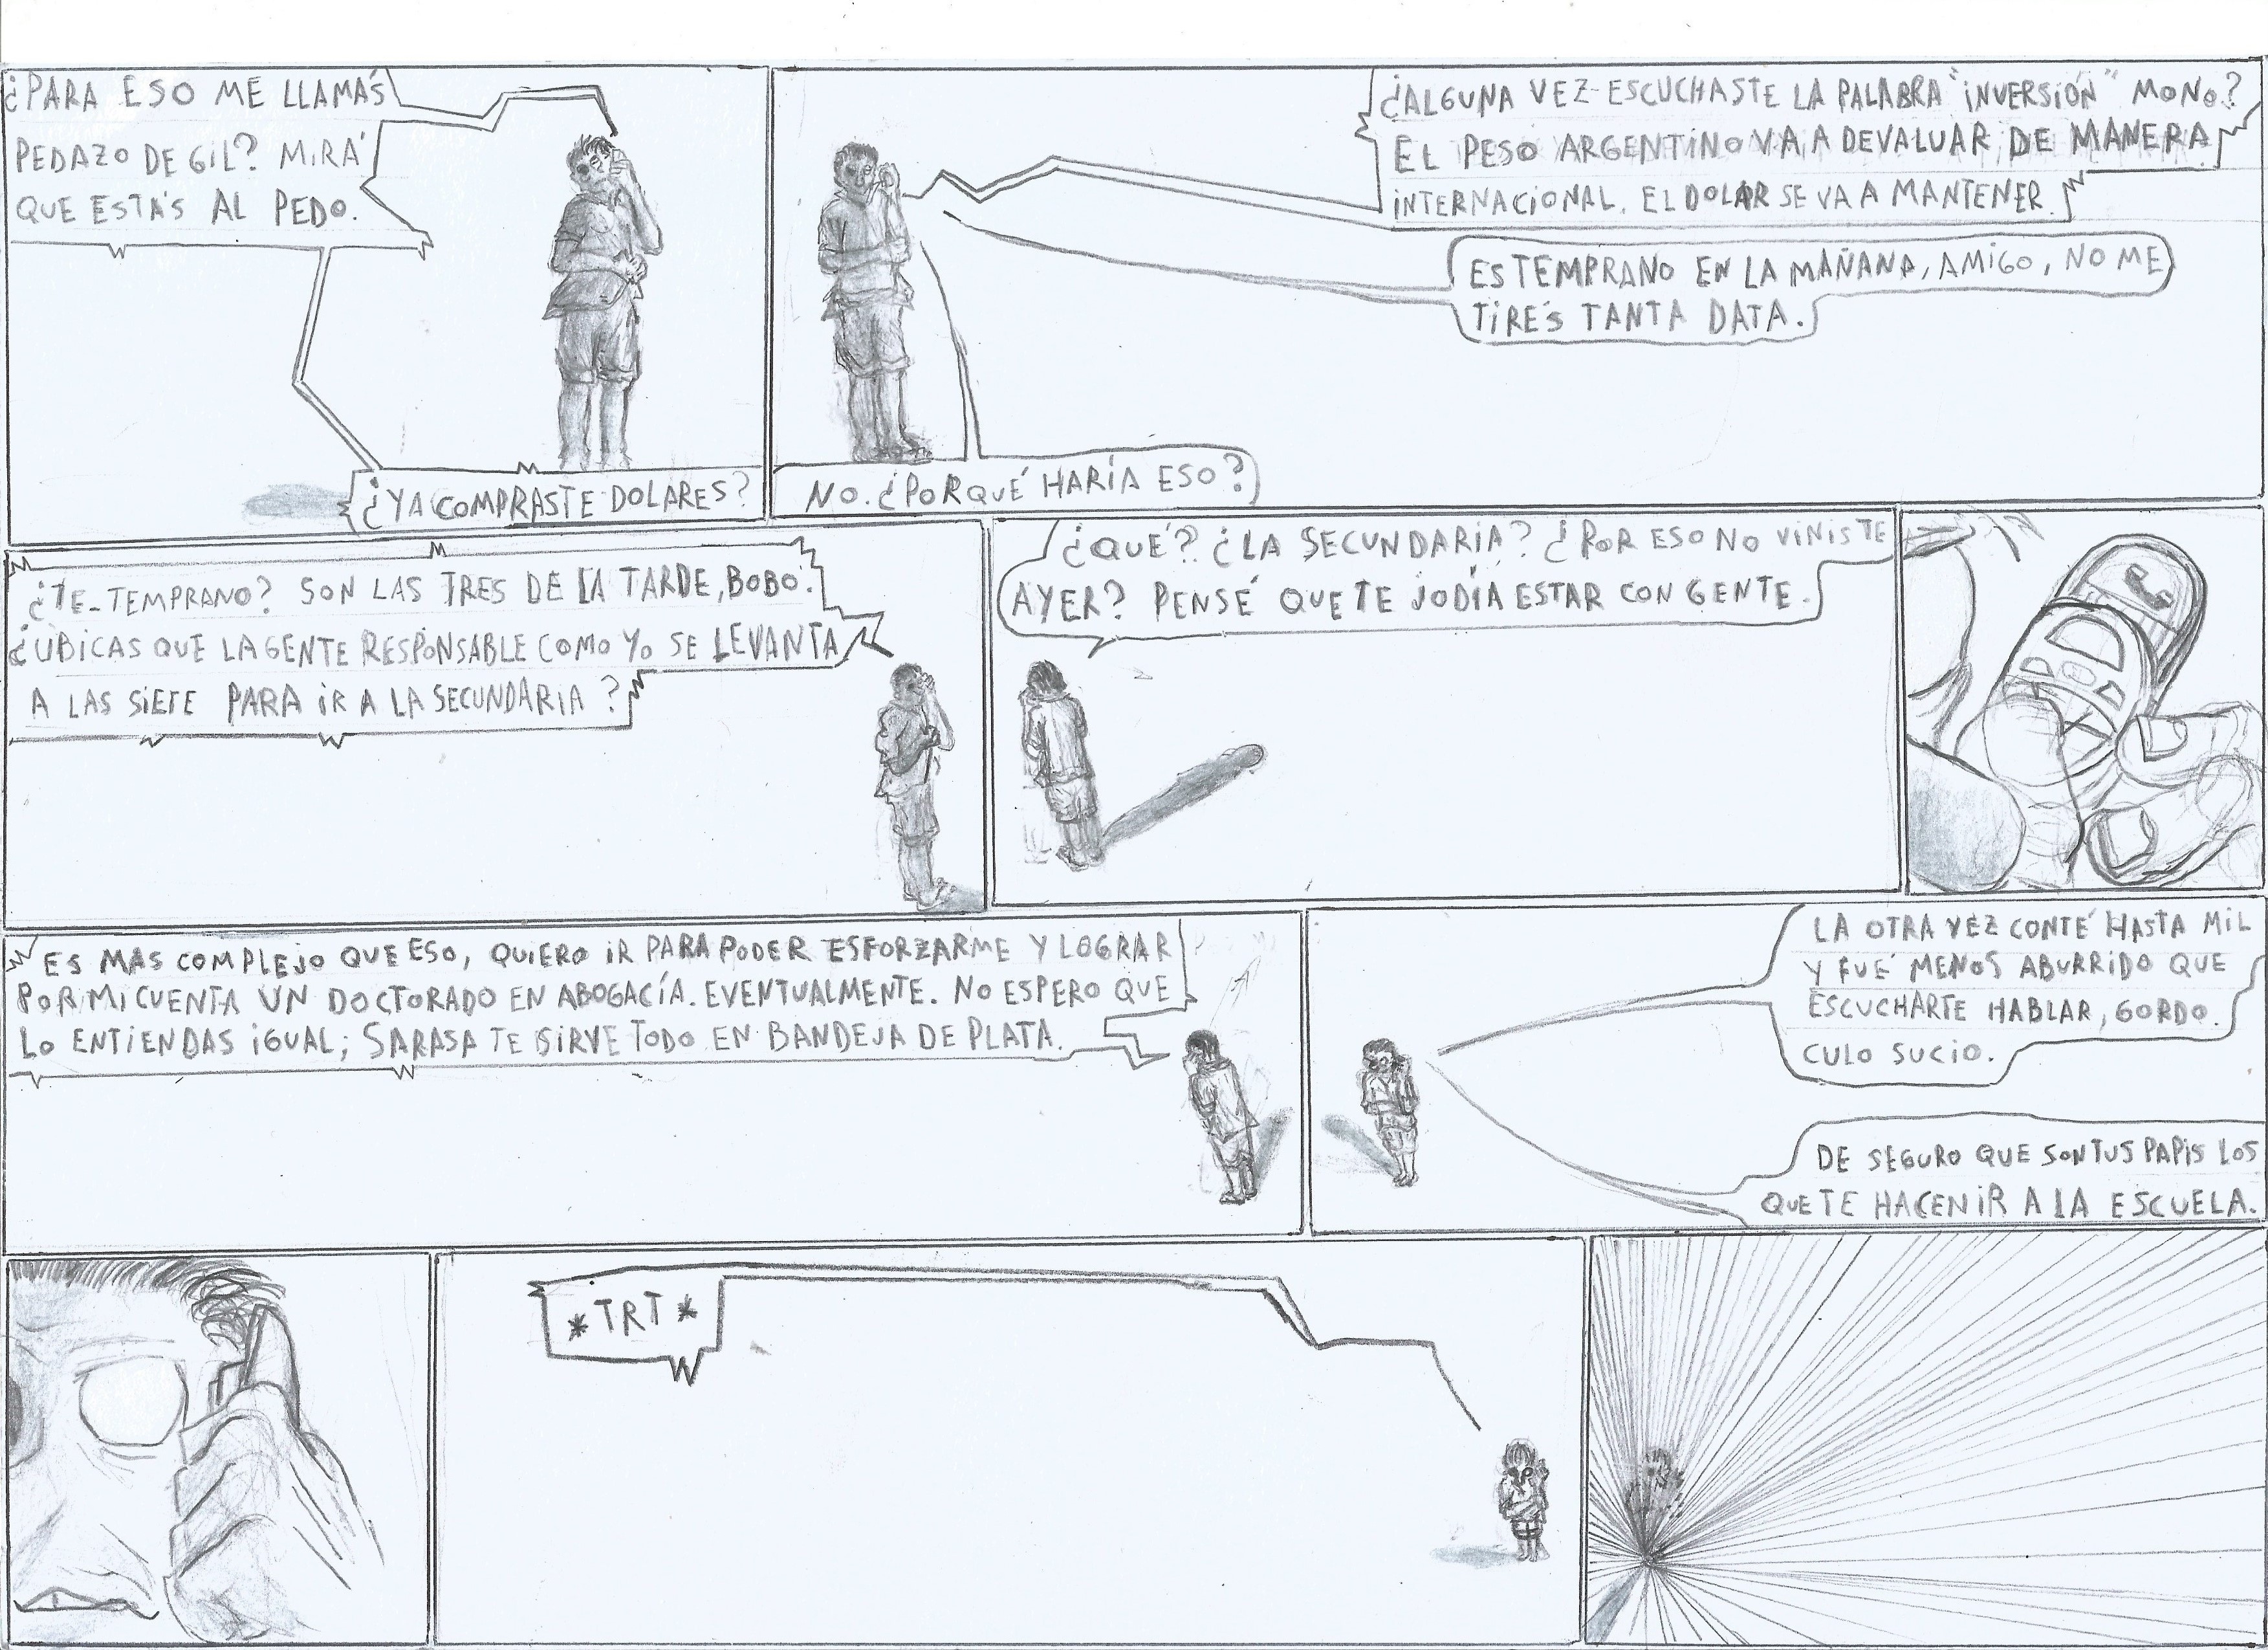 ¿PARA ESO ME LLAMÁS
PEDAZO DE GIL? MIRÁ
QUE ESTÁS AL PEDO.
¿YA COMPRASTE DOLARES?
¿ALGUNA VEZ ESCUCHASTE LA PALABRA "INVERSIÓN" MONO?
EL PESO ARGENTINO VA A DEVALUAR DE MANERA
INTERNACIONAL. EL DOLAR SE VA A MANTENER.
ES TEMPRANO EN LA MAÑANA, AMIGO, NO ME
TIRÉS TANTA DATA.
NO. ¿PORQUÉ HARÍA ESO?
¿TE-TEMPRANO? SON LAS TRES DE LA TARDE, BOBO.
¿UBICAS QUE LA GENTE RESPONSABLE COMO YO SE LEVANTA
A LAS SIETE PARA IR A LA SECUNDARIA?
¿QUÉ? ¿LA SECUNDARIA? ¿POR ESO NO VINISTE
AYER? PENSÉ QUE TE JODÍA ESTAR CON GENTE.
ES MAS COMPLEJO QUE ESO, QUIERO IR PARA PODER ESFORZARME Y LOGRAR
POR MI CUENTA UN DOCTORADO EN ABOGACÍA. EVENTUALMENTE. NO ESPERO QUE
LO ENTIENDAS IGUAL; SARASA TE SIRVE TODO EN BANDEJA DE PLATA.
LA OTRA VEZ CONTÉ HASTA MIL
Y FUÉ MENOS ABURRIDO QUE
ESCUCHARTE HABLAR, GORDO.
CULO SUCIO.
DE SEGURO QUE SON TUS PAPIS LOS
QUE TE HACEN IR A LA ESCUELA.
*TRT*